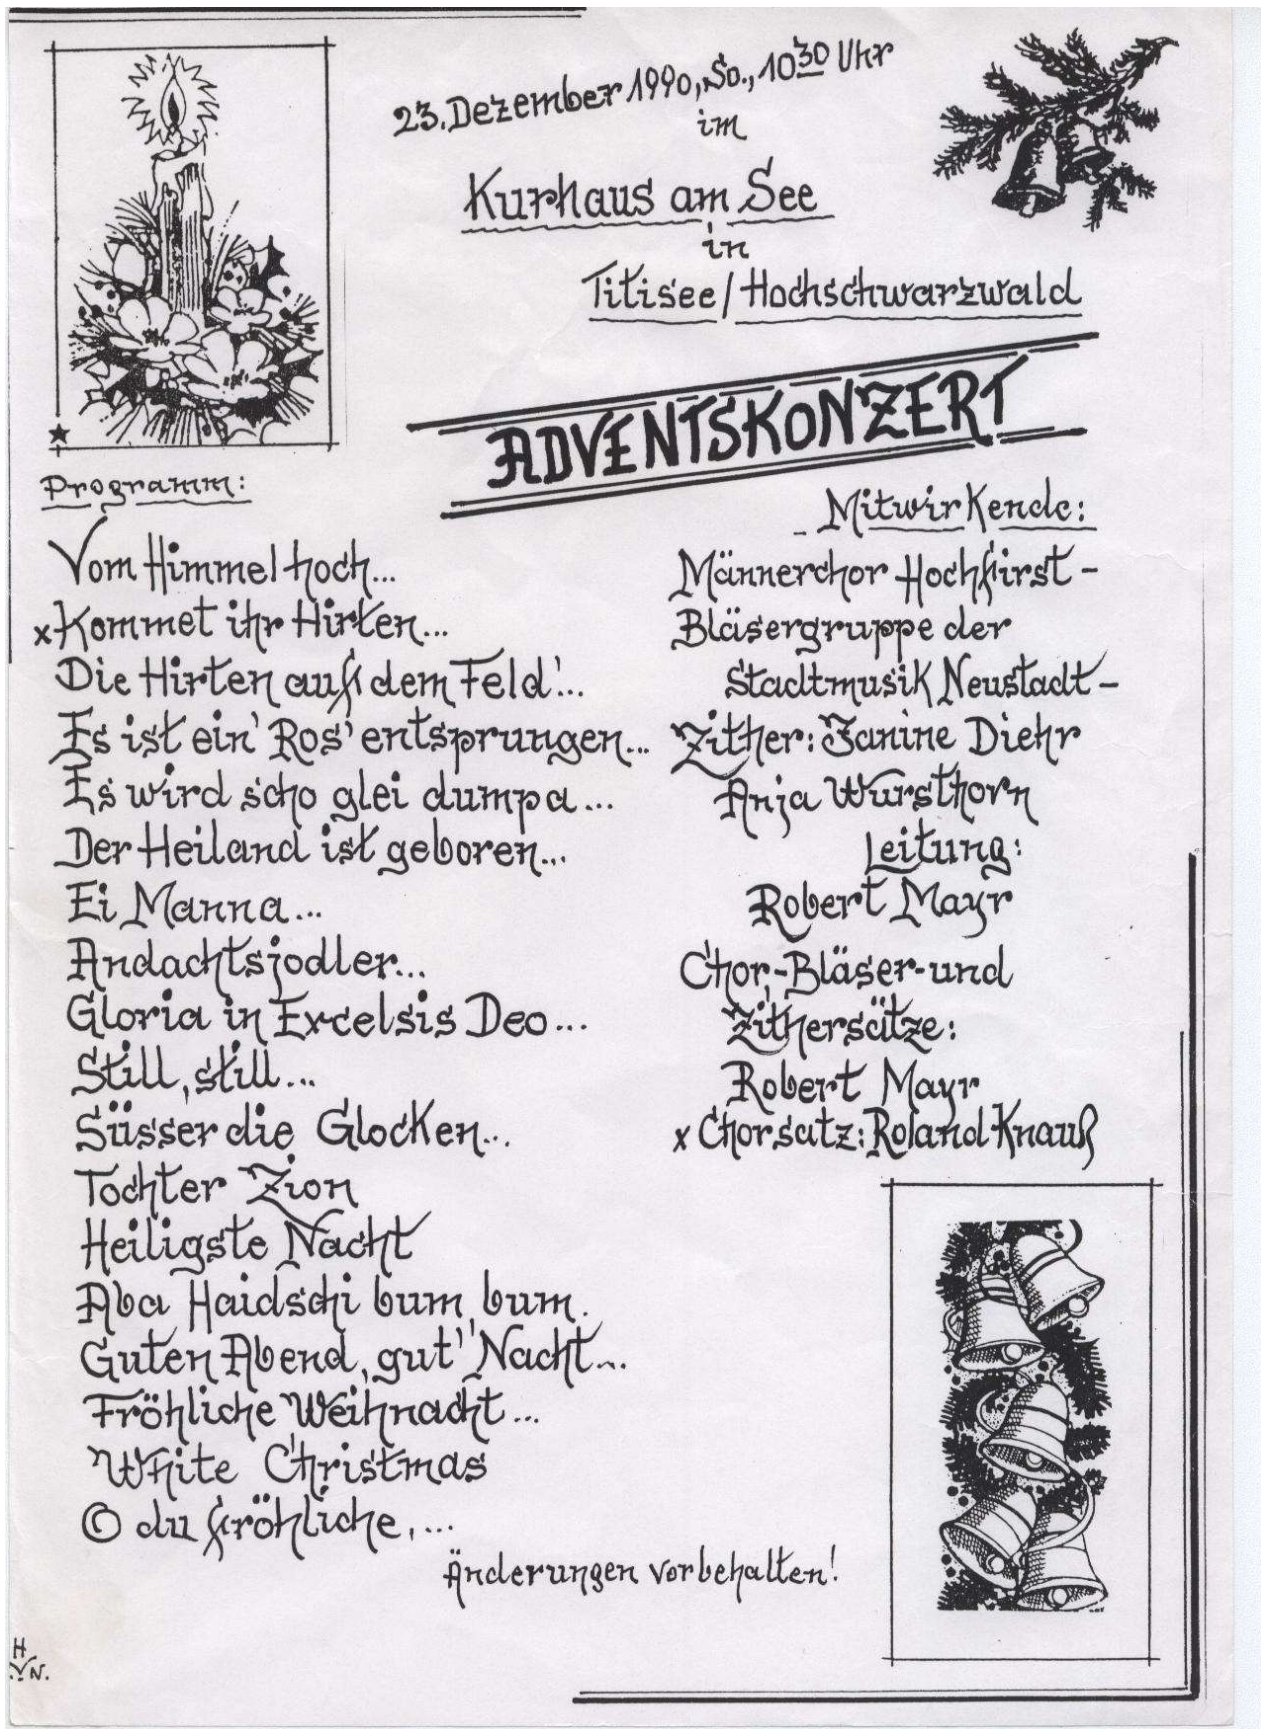 23. Dezember 1990, So., 10³⁰ Uhr
im
Kurhaus am See
in
Titisee/Hochschwarzwald
ADVENTSKONZERT
Programm:
Vom Himmel hoch...
x Kommet ihr Hirten...
Die Hirten auf dem Feld'...
Es ist ein' Ros' entsprungen...
Es wird scho glei dumpa...
Der Heiland ist geboren...
Ei Manna...
Andachtsjodler...
Gloria in Excelsis Deo...
Still, still...
Süsser die Glocken...
Tochter Zion
Heiligste Nacht
Aba Haidschi bum, bum.
Guten Abend, gut' Nacht...
Fröhliche Weihnacht...
White Christmas
O du fröhliche,...
Mitwirkende:
Männerchor Hochfirst-
Bläsergruppe der
Stadtmusik Neustadt-
Zither: Janine Diehr
Anja Wursthorn
Leitung:
Robert Mayr
Chor,-Bläser-und
Zithersätze:
Robert Mayr
x Chorsatz: Roland Knauß
Änderungen vorbehalten!
H
V N.